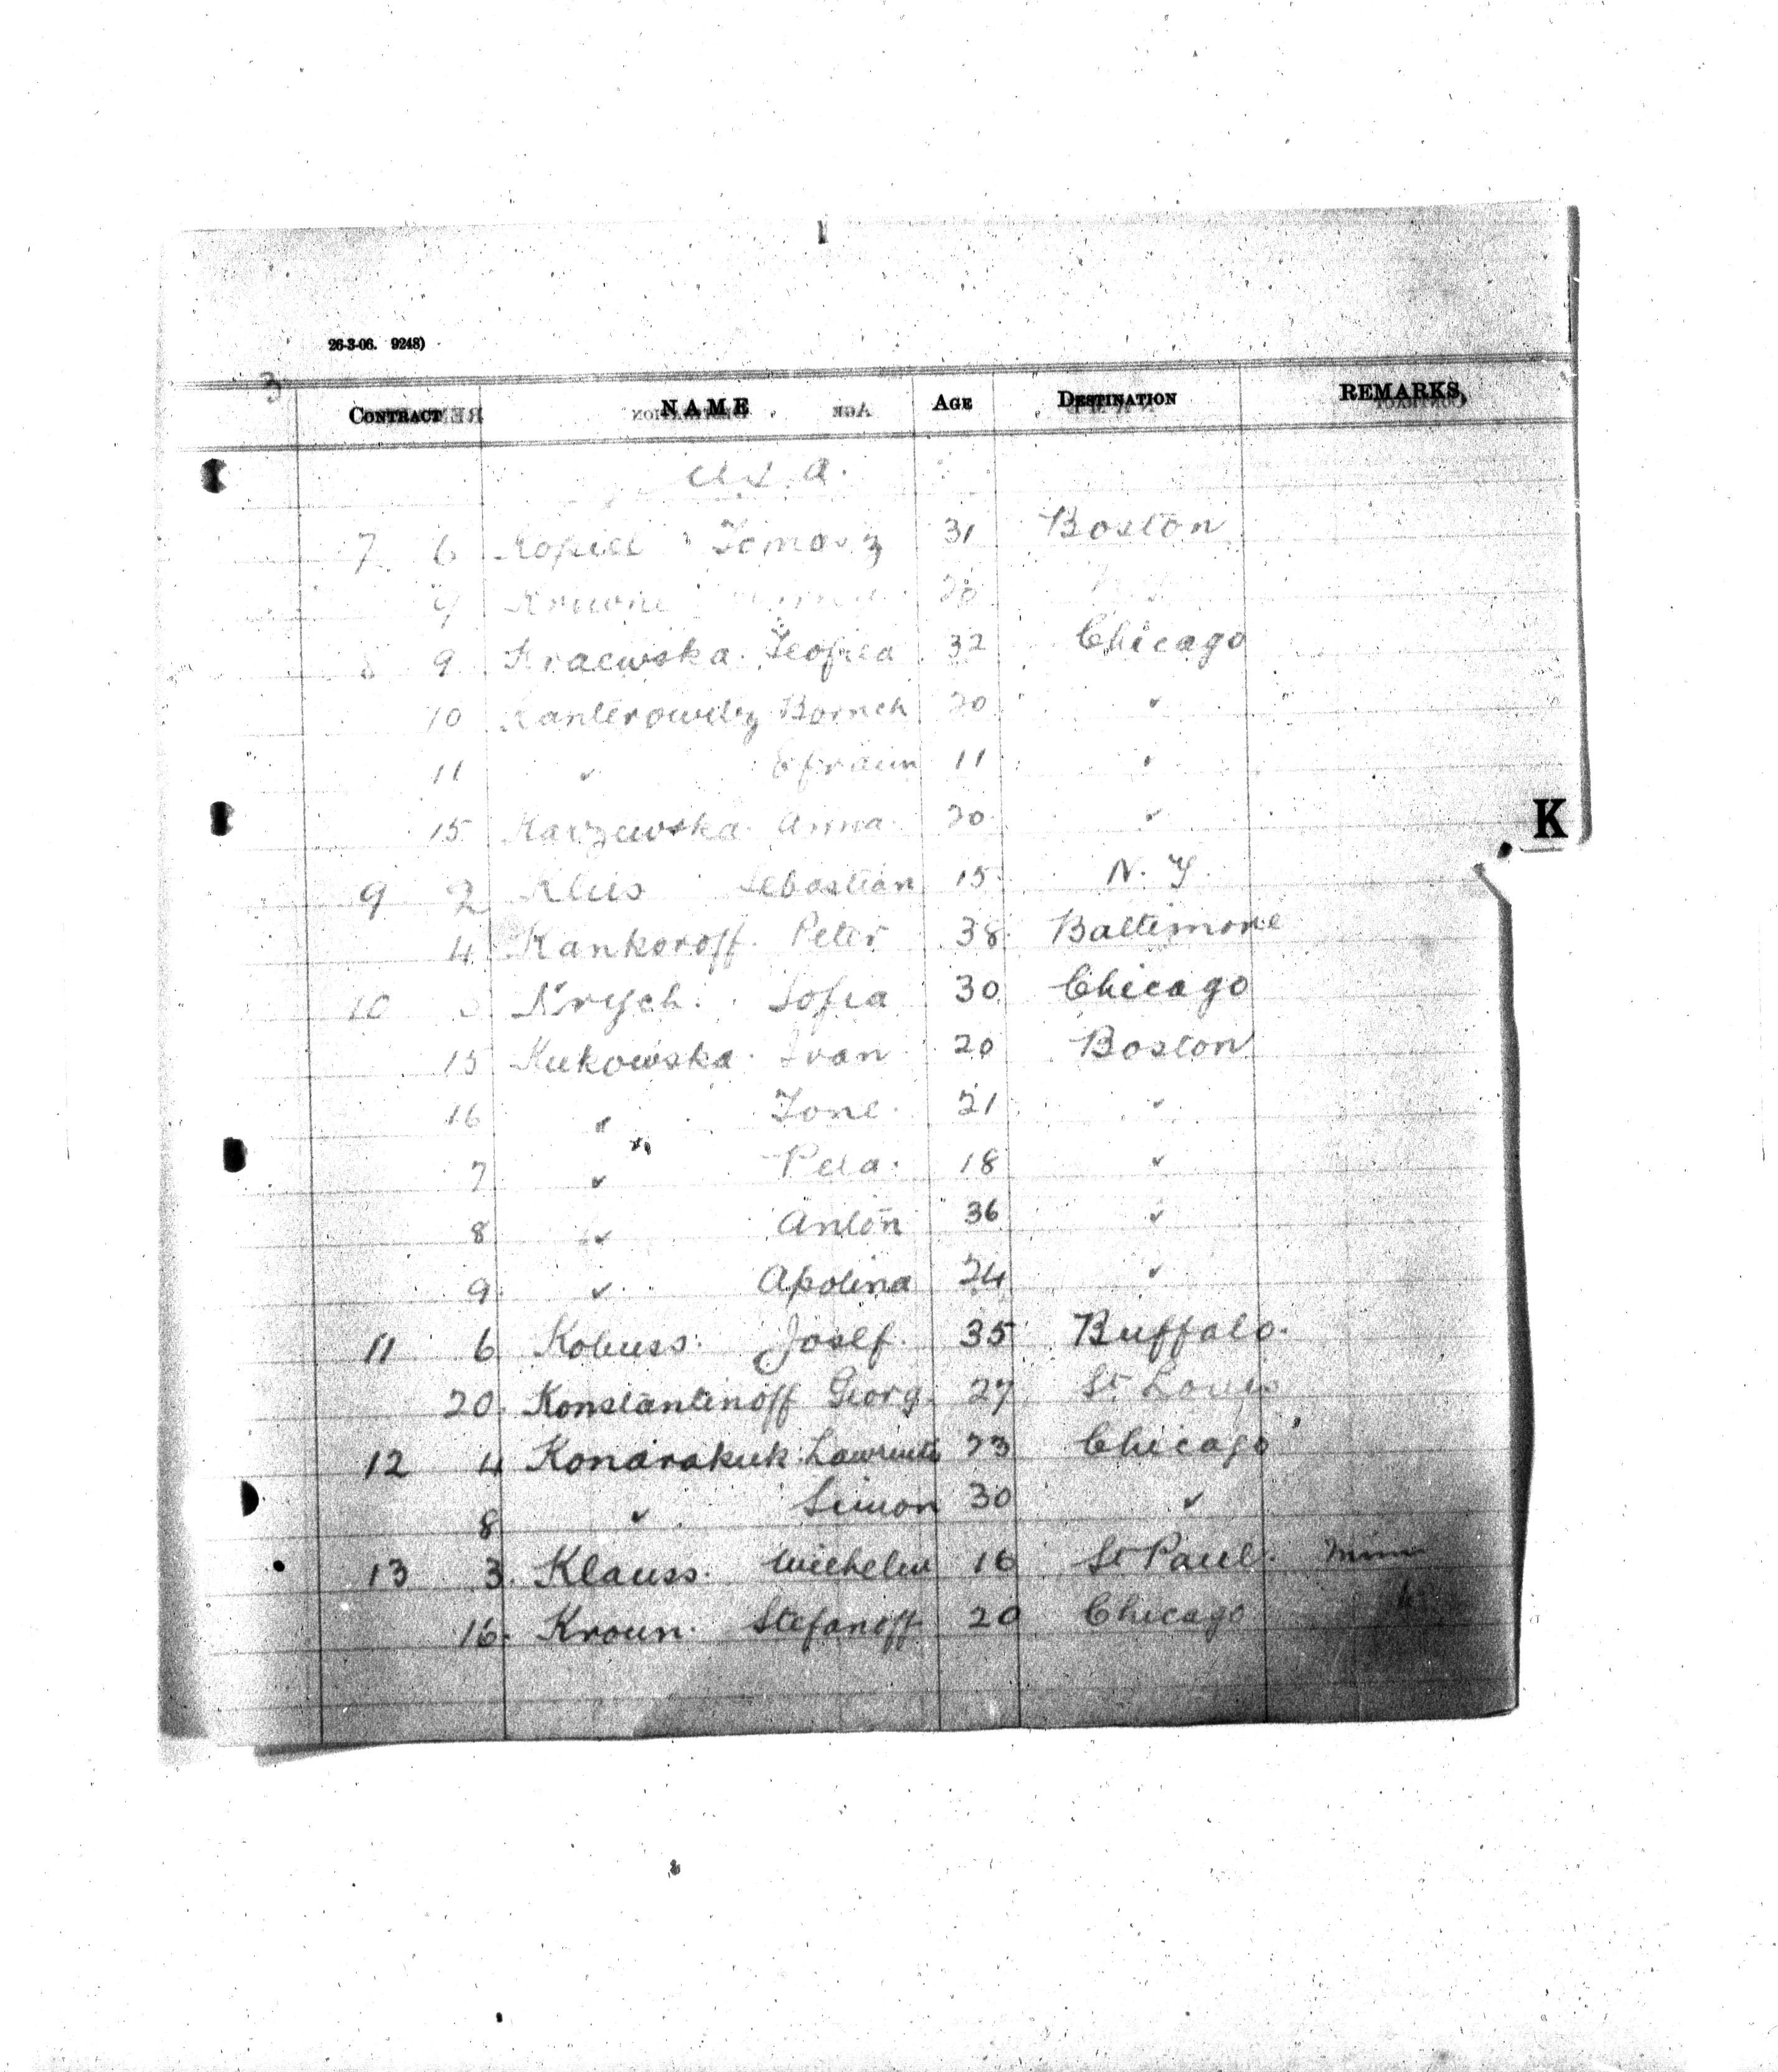 26-3-06. 9248)
3
CONTRACT NAME AGE DESTINATION REMARKS,
U.S.A.
7 6 Kopiec Tomasz 31 Boston
9 20
8 9 Kraewska Teofila 32 Chicago
10 Kanterowitz Boruch 20 "
11 " Efraim 11 "
15 Karzewska Anna 20 "
K
9 2 Klus Sebastian 15 N.Y.
4 Kankoroff Peter 38 Baltimore
10 Krych Sofia 30 Chicago
15 Kukowska Ivan 20 Boston
16 " Tone 21 "
7 " Peta 18 "
8 " Anton 36 "
9 " Apolina 24 "
11 6 Kobuss Josef 35 Buffalo
20 Konstantinoff Georg 27 St Louis
12 4 Konarakuk 23 Chicago
8 " Simon 30 "
13 3 Klauss Wilhelm 16 St Paul Minn
16 Kroun Stefanoff 20 Chicago